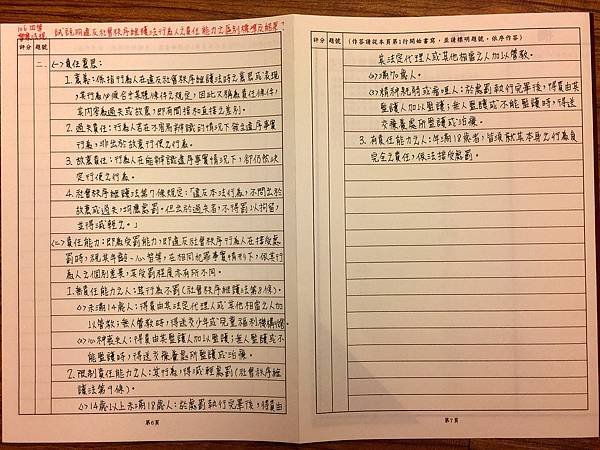 106 四等
警察法規
試說明違反社會秩序維護法行為人之責任能力之區別標準及能果？
評分 題號
二、
(一)責任意思：
1. 意義：係指行為人在違反社會秩序維護法時之意思或表現
，其行為必須合乎某種條件之規定，因此又稱為責任條件，
其內容為過失或故意，即有間接和直接之差別。
2. 過失責任：行為人若在不容易辨識的情況下發生違序事實
行為，非出於故意行使之行為。
3. 故意責任：行為人在能辨識違序事實情況下，卻仍依決
定行使之行為。
4. 社會秩序維護法第7條規定：「違反本法行為，不問出於
故意或過失，均應處罰。但出於過失者，不得罰以拘留，
並得減輕之。」
(二)責任能力：即為受罰能力，即違反社會秩序行為人在接受處
罰時，視其年齡、心智等，在相同犯罪事實情形下，依其行
為人之個別差異，其受罰程度亦有所不同。
1. 無責任能力之人：其行為不罰(社會秩序維護法第8條)。
(1)未滿14歲人：得責由其法定代理人或其他相當之人加
以管教；無人管教時，得送交少年或兒童福利機構收容。
(2)心神喪失人：得責由其監護人加以監護；無人監護或不
能監護時，得送交療養處所監護或治療。
2. 限制責任能力之人：其行為，得減輕處罰(社會秩序維
護法第9條)。
(1)14歲以上未滿18歲人：於處罰執行完畢後，得責由
第6頁
評分 題號 (作答請從本頁第1行開始書寫，並請標明題號，依序作答)
其法定代理人或其他相當之人加以管教。
(2)滿70歲人。
(3)精神耗弱或瘖啞人：於處罰執行完畢後，得責由其
監護人加以監護；無人監護或不能監護時，得送
交療養處所監護或治療。
3. 有責任能力之人：年滿18歲者，皆須就其本身之行為負
完全之責任，依法接受處罰。
第7頁